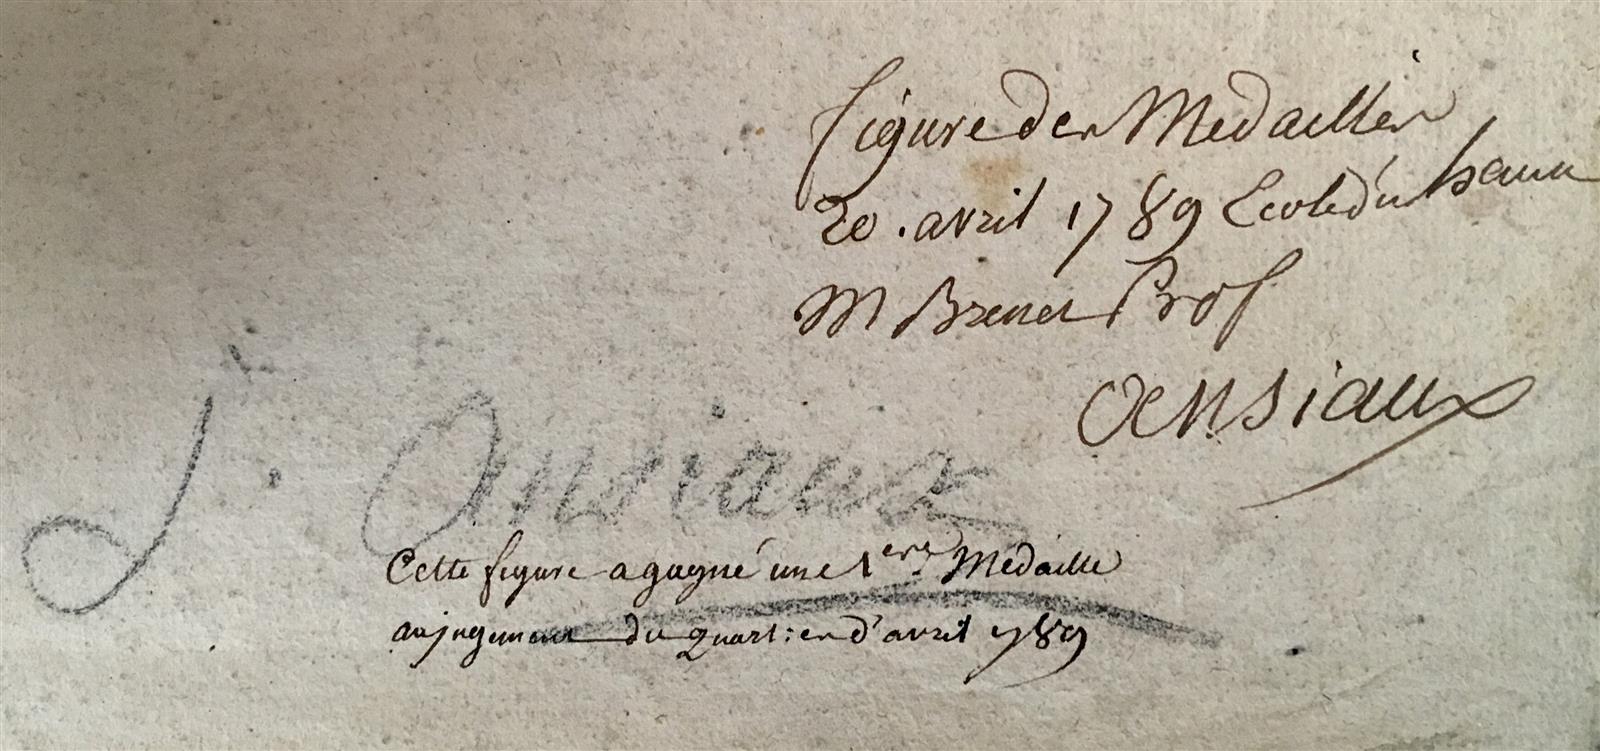 figure des Medailles
20. avril 1789 Ecole du
M Brenet Prof
Ansiaux
J. Ansiaux
Cette figure a gagné une 1ere Médaille
au jugement du quartier d'avril 789